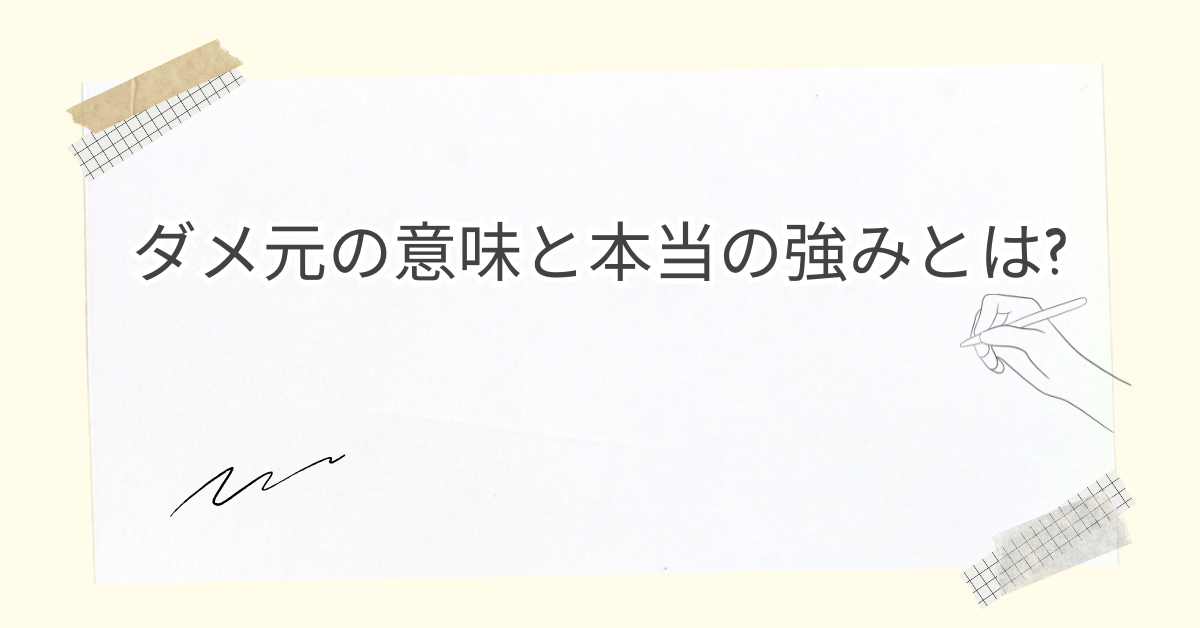 ダメ元の意味と本当の強みとは?